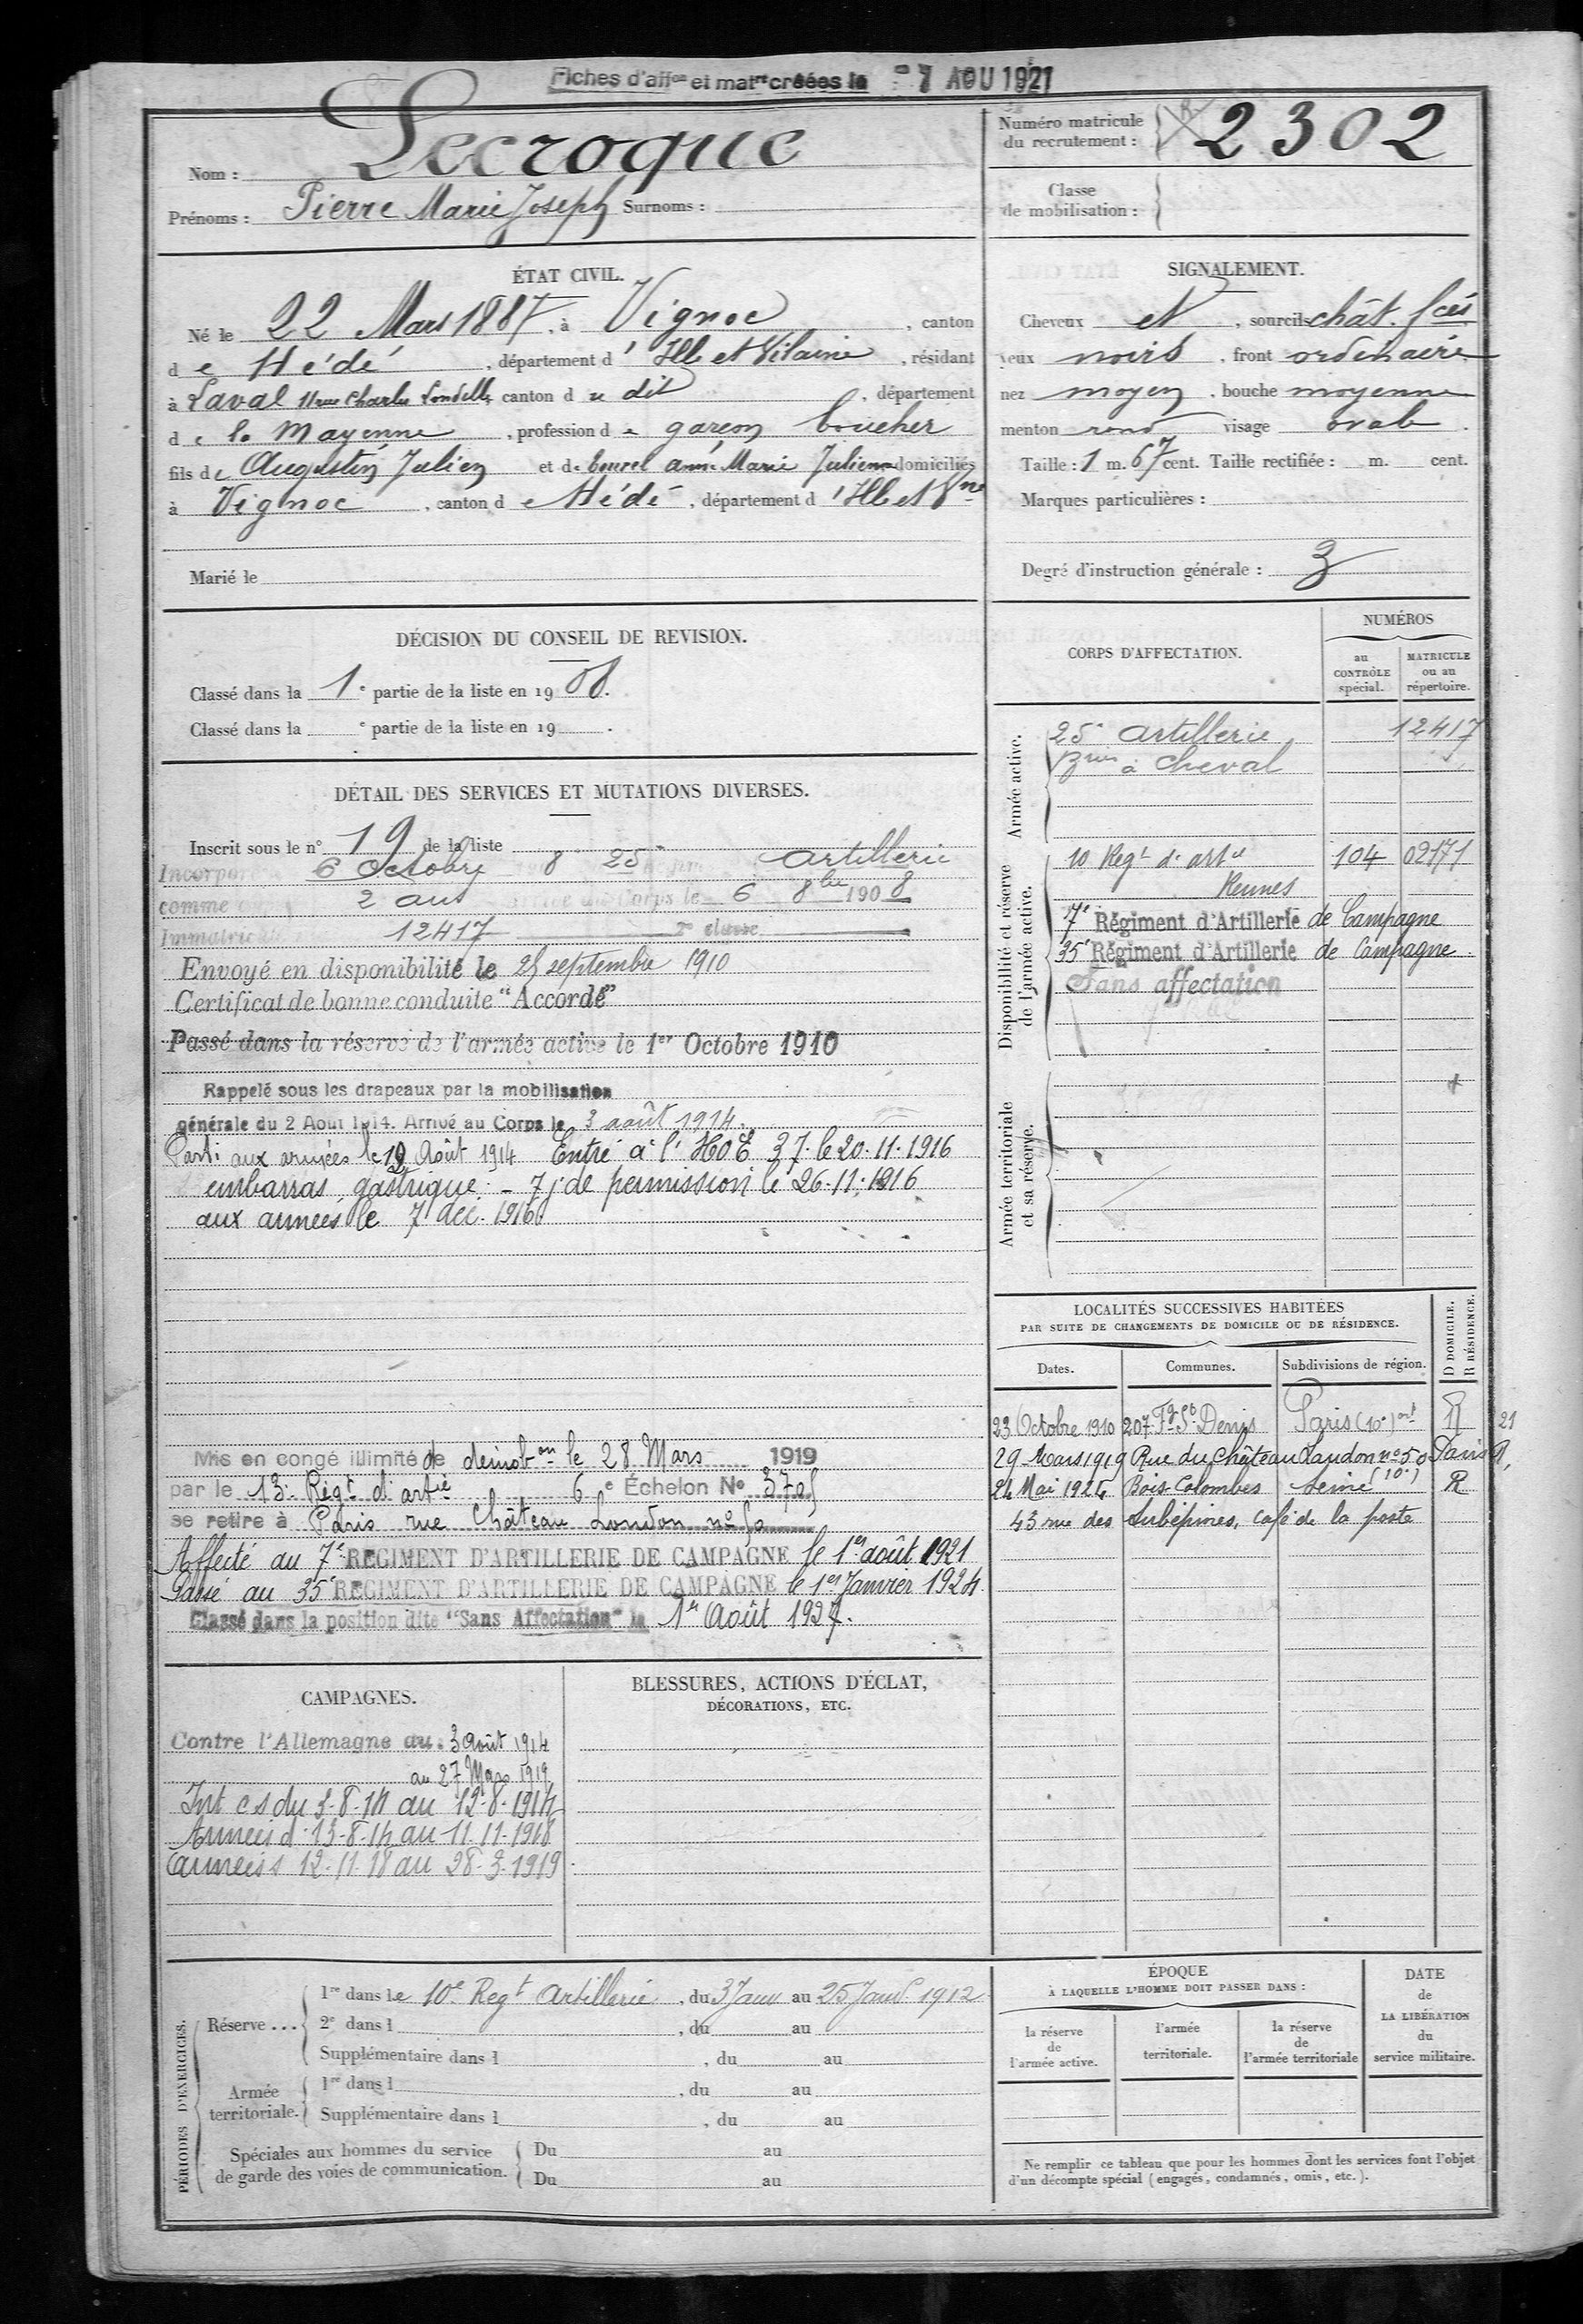 Fiches d'affon et matrt créées le - 7 AOU 1921
Nom : Lecroque
Prénoms : Pierre Marie Joseph Surnoms :
Numéro matricule
du recrutement : 2302
Classe
de mobilisation :
ÉTAT CIVIL.
Né le 22 Mars 1887, à Vignoc, canton
de Hédé, département d'Ille et Vilaine, résidant
à Laval 11 rue Charles Landelle, canton du dit, département
de la Mayenne, profession de garçon boucher
fils de Augustin Julien et de Anne Marie Julienne domiciliés
à Vignoc, canton de Hédé, département d'Ille et Vne
Marié le
SIGNALEMENT.
Cheveux et, sourcils chât. fcés
yeux noirs, front ordinaire
nez moyen, bouche moyenne
menton rond visage ovale.
Taille : 1 m. 67 cent. Taille rectifiée : m. cent.
Marques particulières :
Degré d'instruction générale : 3
DÉCISION DU CONSEIL DE REVISION.
Classé dans la 1e partie de la liste en 1908.
Classé dans la e partie de la liste en 19 .
DÉTAIL DES SERVICES ET MUTATIONS DIVERSES.
Inscrit sous le n° 19 de la liste
Incorporé 6 Octobre 8 25e artillerie
comme 2 ans Corps le 6 8bre 1908
Immatriculé 12417 2e classe
Envoyé en disponibilité le 25 septembre 1910
Certificat de bonne conduite "Accordé"
Passé dans la réserve de l'armée active le 1er Octobre 1910
Rappelé sous les drapeaux par la mobilisation
générale du 2 Août 1914. Arrivé au Corps le 3 août 1914.
Parti aux armées le Août 1914 Entré à l'HOE 37 le 20.11.1916
embarras gastrique - 7 j. de permission le 26.11.1916
aux armées le 7 déc. 1916
Mis en congé illimité de démobon le 28 Mars 1919
par le 13e Régt d'artie 6e Échelon No
se retire à Paris rue Château London no 50
Affecté au 7e REGIMENT D'ARTILLERIE DE CAMPAGNE le 1er août 1921
Passé au 35e REGIMENT D'ARTILLERIE DE CAMPAGNE le 1er Janvier 1924
Classé dans la position dite "Sans Affectation" le 1er Août 1927.
CORPS D'AFFECTATION.
NUMÉROS
au
CONTRÔLE
spécial.
MATRICULE
ou au
répertoire.
Armée active.
25e artillerie 12417
à cheval
Disponibilité et réserve
de l'armée active.
10 Regt d'artie 104 02171
Rennes
7e Régiment d'Artillerie de Campagne
35e Régiment d'Artillerie de Campagne
Sans affectation
Armée territoriale
et sa réserve.
LOCALITÉS SUCCESSIVES HABITÉES
PAR SUITE DE CHANGEMENTS DE DOMICILE OU DE RÉSIDENCE.
Dates. Communes. Subdivisions de région.
D DOMICILE.
R RÉSIDENCE.
23 Octobre 1910 207 Fg St Denis Paris (10e) art R 21
29 Mars 1919 Rue du Château Landon no 50 Paris R,
(10e)
24 Mai 1924 Bois Colombes Seine R
43 rue des Aubépines, café de la poste
CAMPAGNES.
Contre l'Allemagne du 3 août 1914
au 27 Mars 1919
Int c s du 3-8-14 au 12-8-1914
Armées d 13-8-14 au 11-11-1918
armées s 12-11-18 au 28-3-1919
BLESSURES, ACTIONS D'ÉCLAT,
DÉCORATIONS, ETC.
PÉRIODES D'EXERCICES.
Réserve ...
1re dans le 10e Regt Artillerie, du 3 Janv au 25 Janv 1912
2e dans l , du au
Supplémentaire dans l , du au
Armée
territoriale.
1re dans l , du au
Supplémentaire dans l , du au
Spéciales aux hommes du service
de garde des voies de communication.
Du au
Du au
ÉPOQUE
À LAQUELLE L'HOMME DOIT PASSER DANS :
la réserve
de
l'armée active.
l'armée
territoriale.
la réserve
de
l'armée territoriale
DATE
de
LA LIBÉRATION
du
service militaire.
Ne remplir ce tableau que pour les hommes dont les services font l'objet
d'un décompte spécial (engagés, condamnés, omis, etc.).